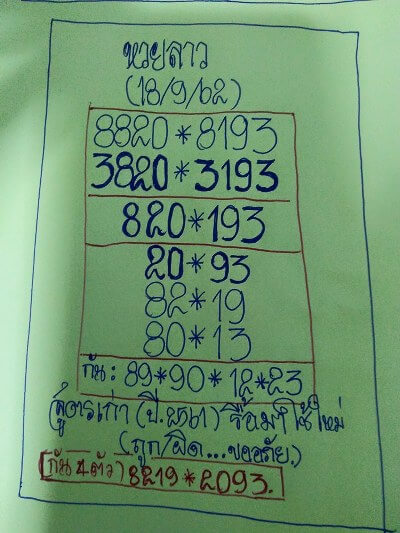 หวยลาว
(18/9/62)
8820*8193
3820*3193
820*193
20*93
82*19
80*13
กัน: 89*90*12*23
สูตรเก่า (ปี.๒๕๖๑) รื้อมาใช้ใหม่
(ถูก/ผิด...ขออภัย.)
(กัน 4 ตัว) 8219*2093.